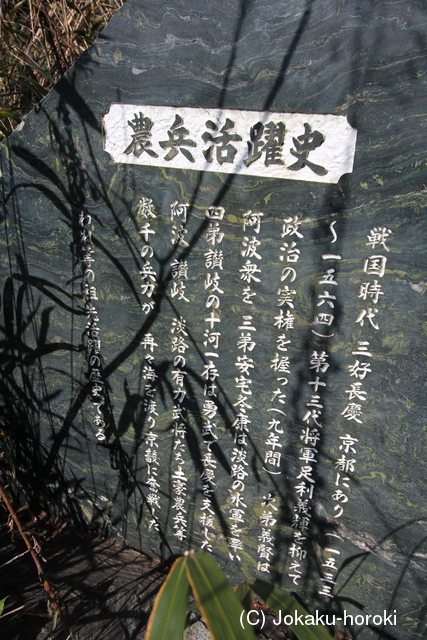 農兵活躍史
戦国時代 三好長慶 京都にあり(一五三三
〜一五六四)第十三代将軍足利義輝を抑えて
政治の実権を握った(九年間) 次弟義賢は
阿波衆を 三弟安宅冬康は淡路の水軍を率い
四弟讃岐の十河一存は勇武で長慶を支援した
阿波 讃岐 淡路の有力武将たち土豪農兵等
数千の兵力が 再々海を渡り京畿に奮戦した
われ等の祖兵活躍の歴史である
(C)Jokaku-horoki